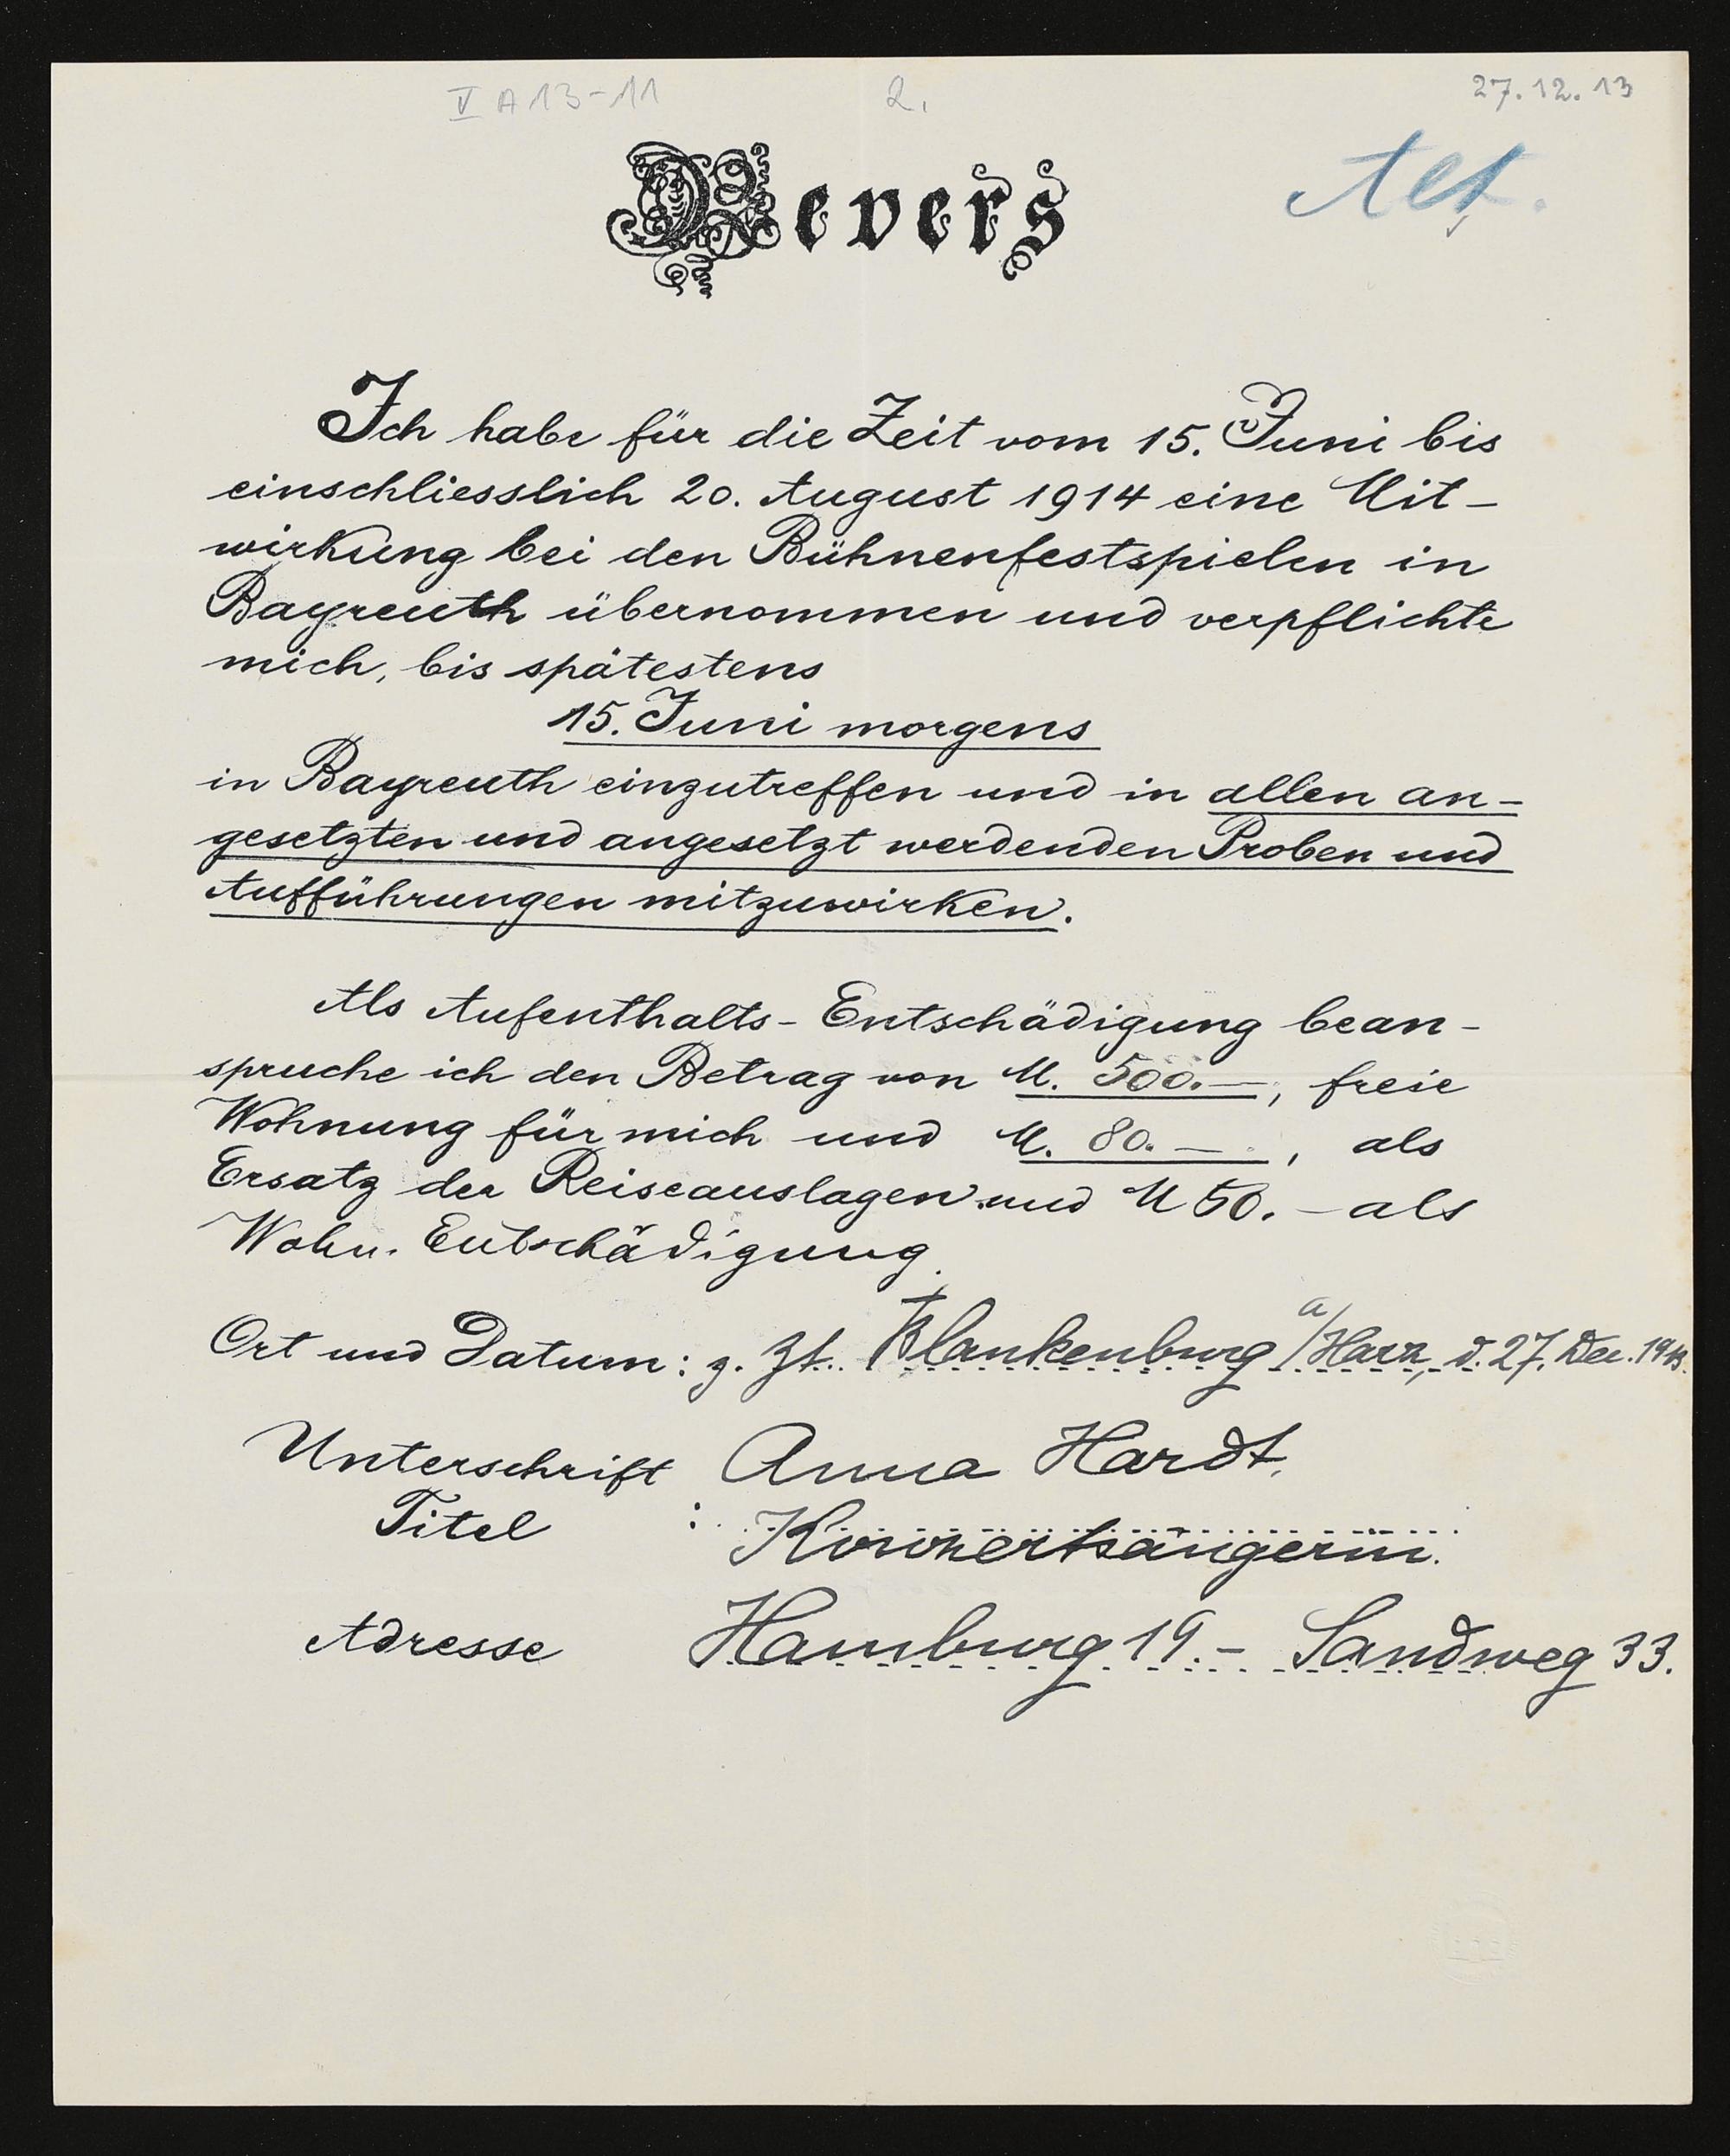 V A 13-11 2. 27.12.13
Alt.
Revers
Ich habe für die Zeit vom 15. Juni bis
einschliesslich 20. August 1914 eine Mit-
wirkung bei den Bühnenfestspielen in
Bayreuth übernommen und verpflichte
mich, bis spätestens
15. Juni morgens
in Bayreuth einzutreffen und in allen an-
gesetzten und angesetzt werdenden Proben und
Aufführungen mitzuwirken.
Als Aufenthalts-Entschädigung bean-
spruche ich den Betrag von M. 500.—, freie
Wohnung für mich und M. 80.—, als
Ersatz der Reiseauslagen und M 50.- als
Wohn. Entschädigung.
Ort und Datum: z. Zt. Blankenburg a/Harz, d. 27. Dez. 1913.
Unterschrift Anna Hardt.
Titel : Konzertsängerin.
Adresse Hamburg 19.- Sandweg 33.